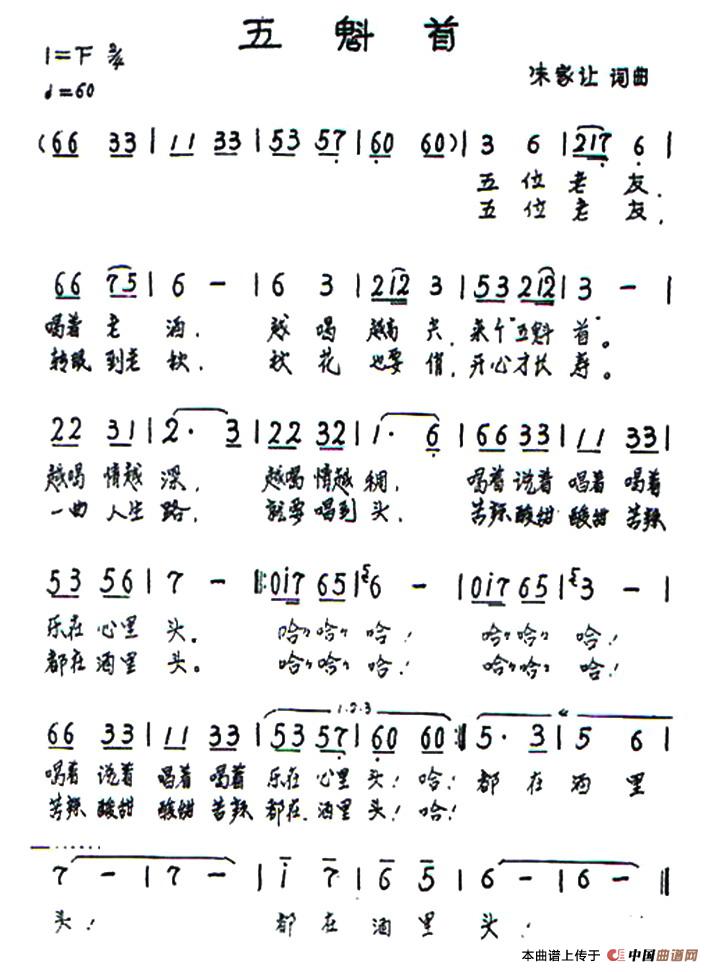 五 魁 首
1=下 2/4
♩=60
朱家让 词曲
(66 33 | 11 33 | 53 57 | 60 60) | 3 6 | 217 6 |
五 位 老 友,
五 位 老 友,
66 75 | 6 - | 6 3 | 212 3 | 53 212 | 3 - |
喝着 老 酒, 越 喝 越高 兴, 来个"五魁 首"。
转眼 到老 秋, 秋 花 也要 俏, 开心才长 寿。
22 31 | 2· 3 | 22 32 | 1· 6 | 66 33 | 11 33 |
越喝 情越 深, 越喝 情越 稠, 喝着 说着 唱着 喝着
一曲 人生 路, 就要 唱到 头, 苦辣 酸甜 酸甜 苦辣
53 56 | 7 - |: 0i7 65 | 6 - | 0i7 65 | 3 - |
乐在 心里 头。 哈哈 哈哈 哈! 哈哈 哈哈 哈!
都在 酒里 头。 哈哈 哈哈 哈! 哈哈 哈哈 哈!
1·2·3
66 33 | 11 33 | 53 57 | 60 60 :| 5· 3 | 5 6 |
喝着 说着 唱着 喝着 乐在 心里 头! 哈! 都 在 酒 里
苦辣 酸甜 酸甜 苦辣 都在 酒里 头! 哈!
7 - | 7 - | i 7 | 6 5 | 6 - | 6 - ||
头! 都 在 酒 里 头!
本曲谱上传于 中国曲谱网